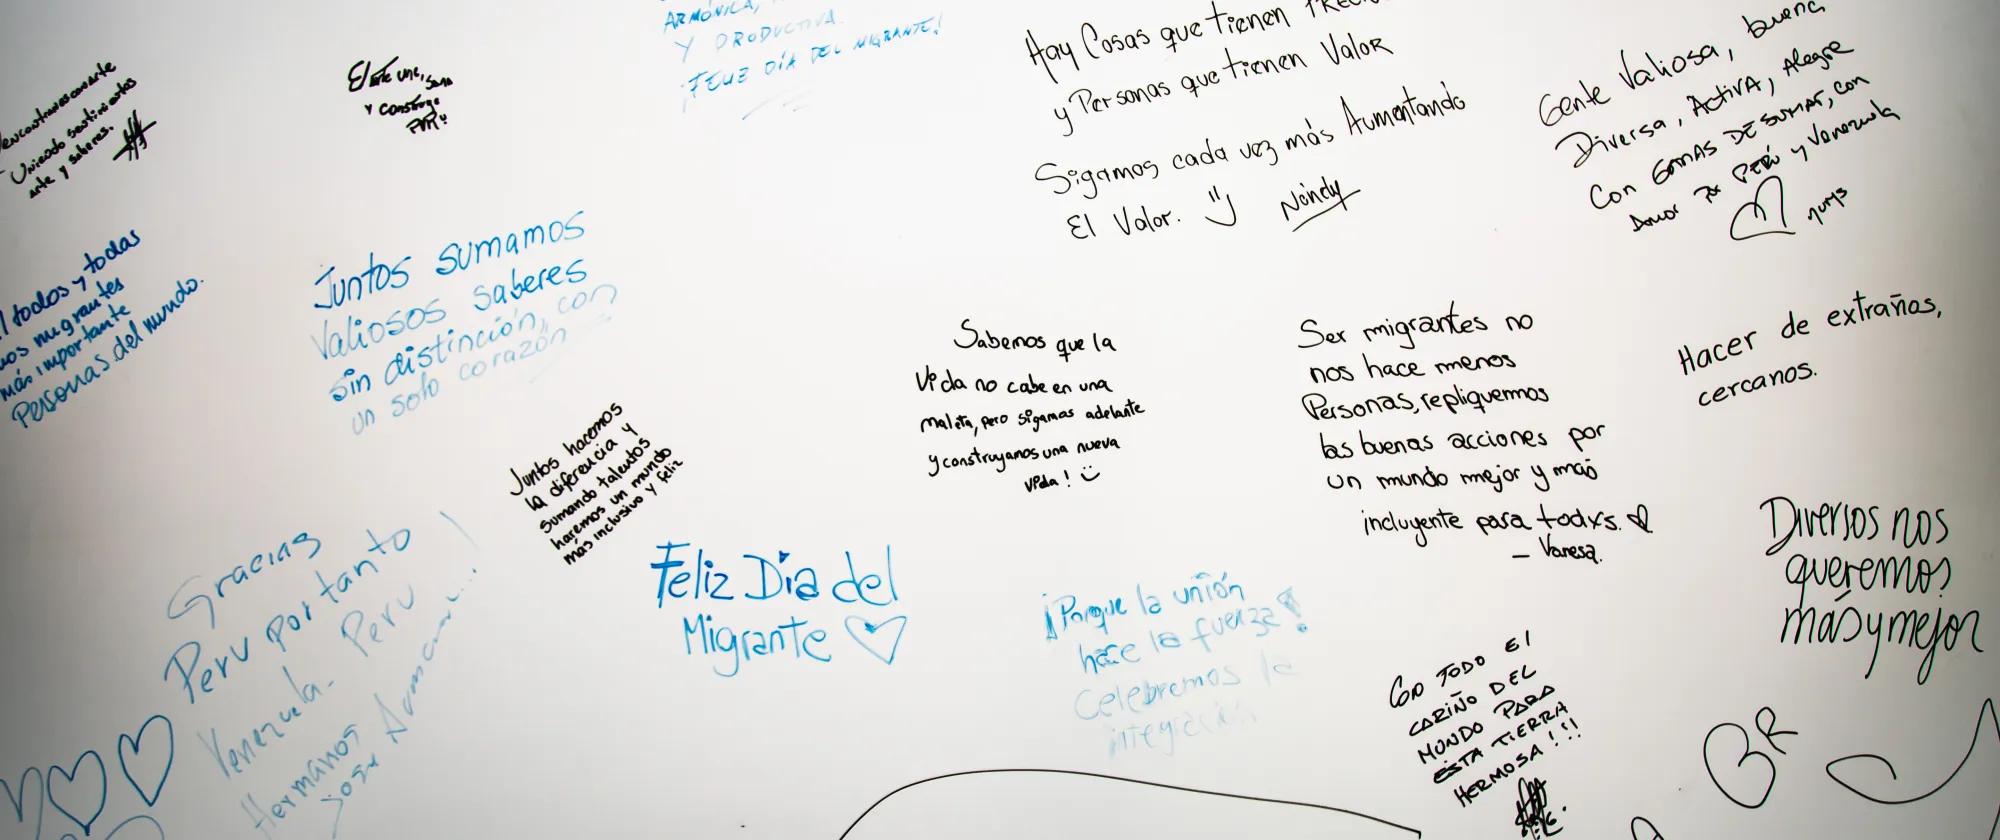 encontrarnos con arte
Uniendo sentimientos
arte y saberes.
El arte une, sana
y construye
ARMÓNICA,
Y PRODUCTIVA.
¡FELIZ DÍA DEL MIGRANTE!
Hay Cosas que tienen
y Personas que tienen Valor
Sigamos cada vez más Aumentando
El Valor.
Neindy
Gente Valiosa, buena
Diversa, ACTIVA, Alegre
Con GANAS DE SUMAR, con
Amor PERÚ y Venezuela
nurys
todos y todas
migrantes
más importante
Personas del mundo.
Juntos sumamos
Valiosos saberes
sin distinción, con
un solo corazón
Juntos hacemos
la diferencia y
sumando talentos
haremos un mundo
más inclusivo y feliz
Sabemos que la
Vida no cabe en una
maleta, pero sigamos adelante
y construyamos una nueva
vida!
Ser migrantes no
nos hace menos
Personas, repliquemos
las buenas acciones por
un mundo mejor y más
incluyente para todxs.
- Vanesa.
Hacer de extraños,
cercanos.
Diversos nos
queremos
más y mejor
Gracias
Peru por tanto
Venezuela - Peru
Hermanos
Feliz Dia del
Migrante
¡Porque la unión
hace la fuerza!
Celebremos la
integración
CON TODO El
CARIÑO DEL
MUNDO PARA
ESTA TIERRA
HERMOSA!!!
BR